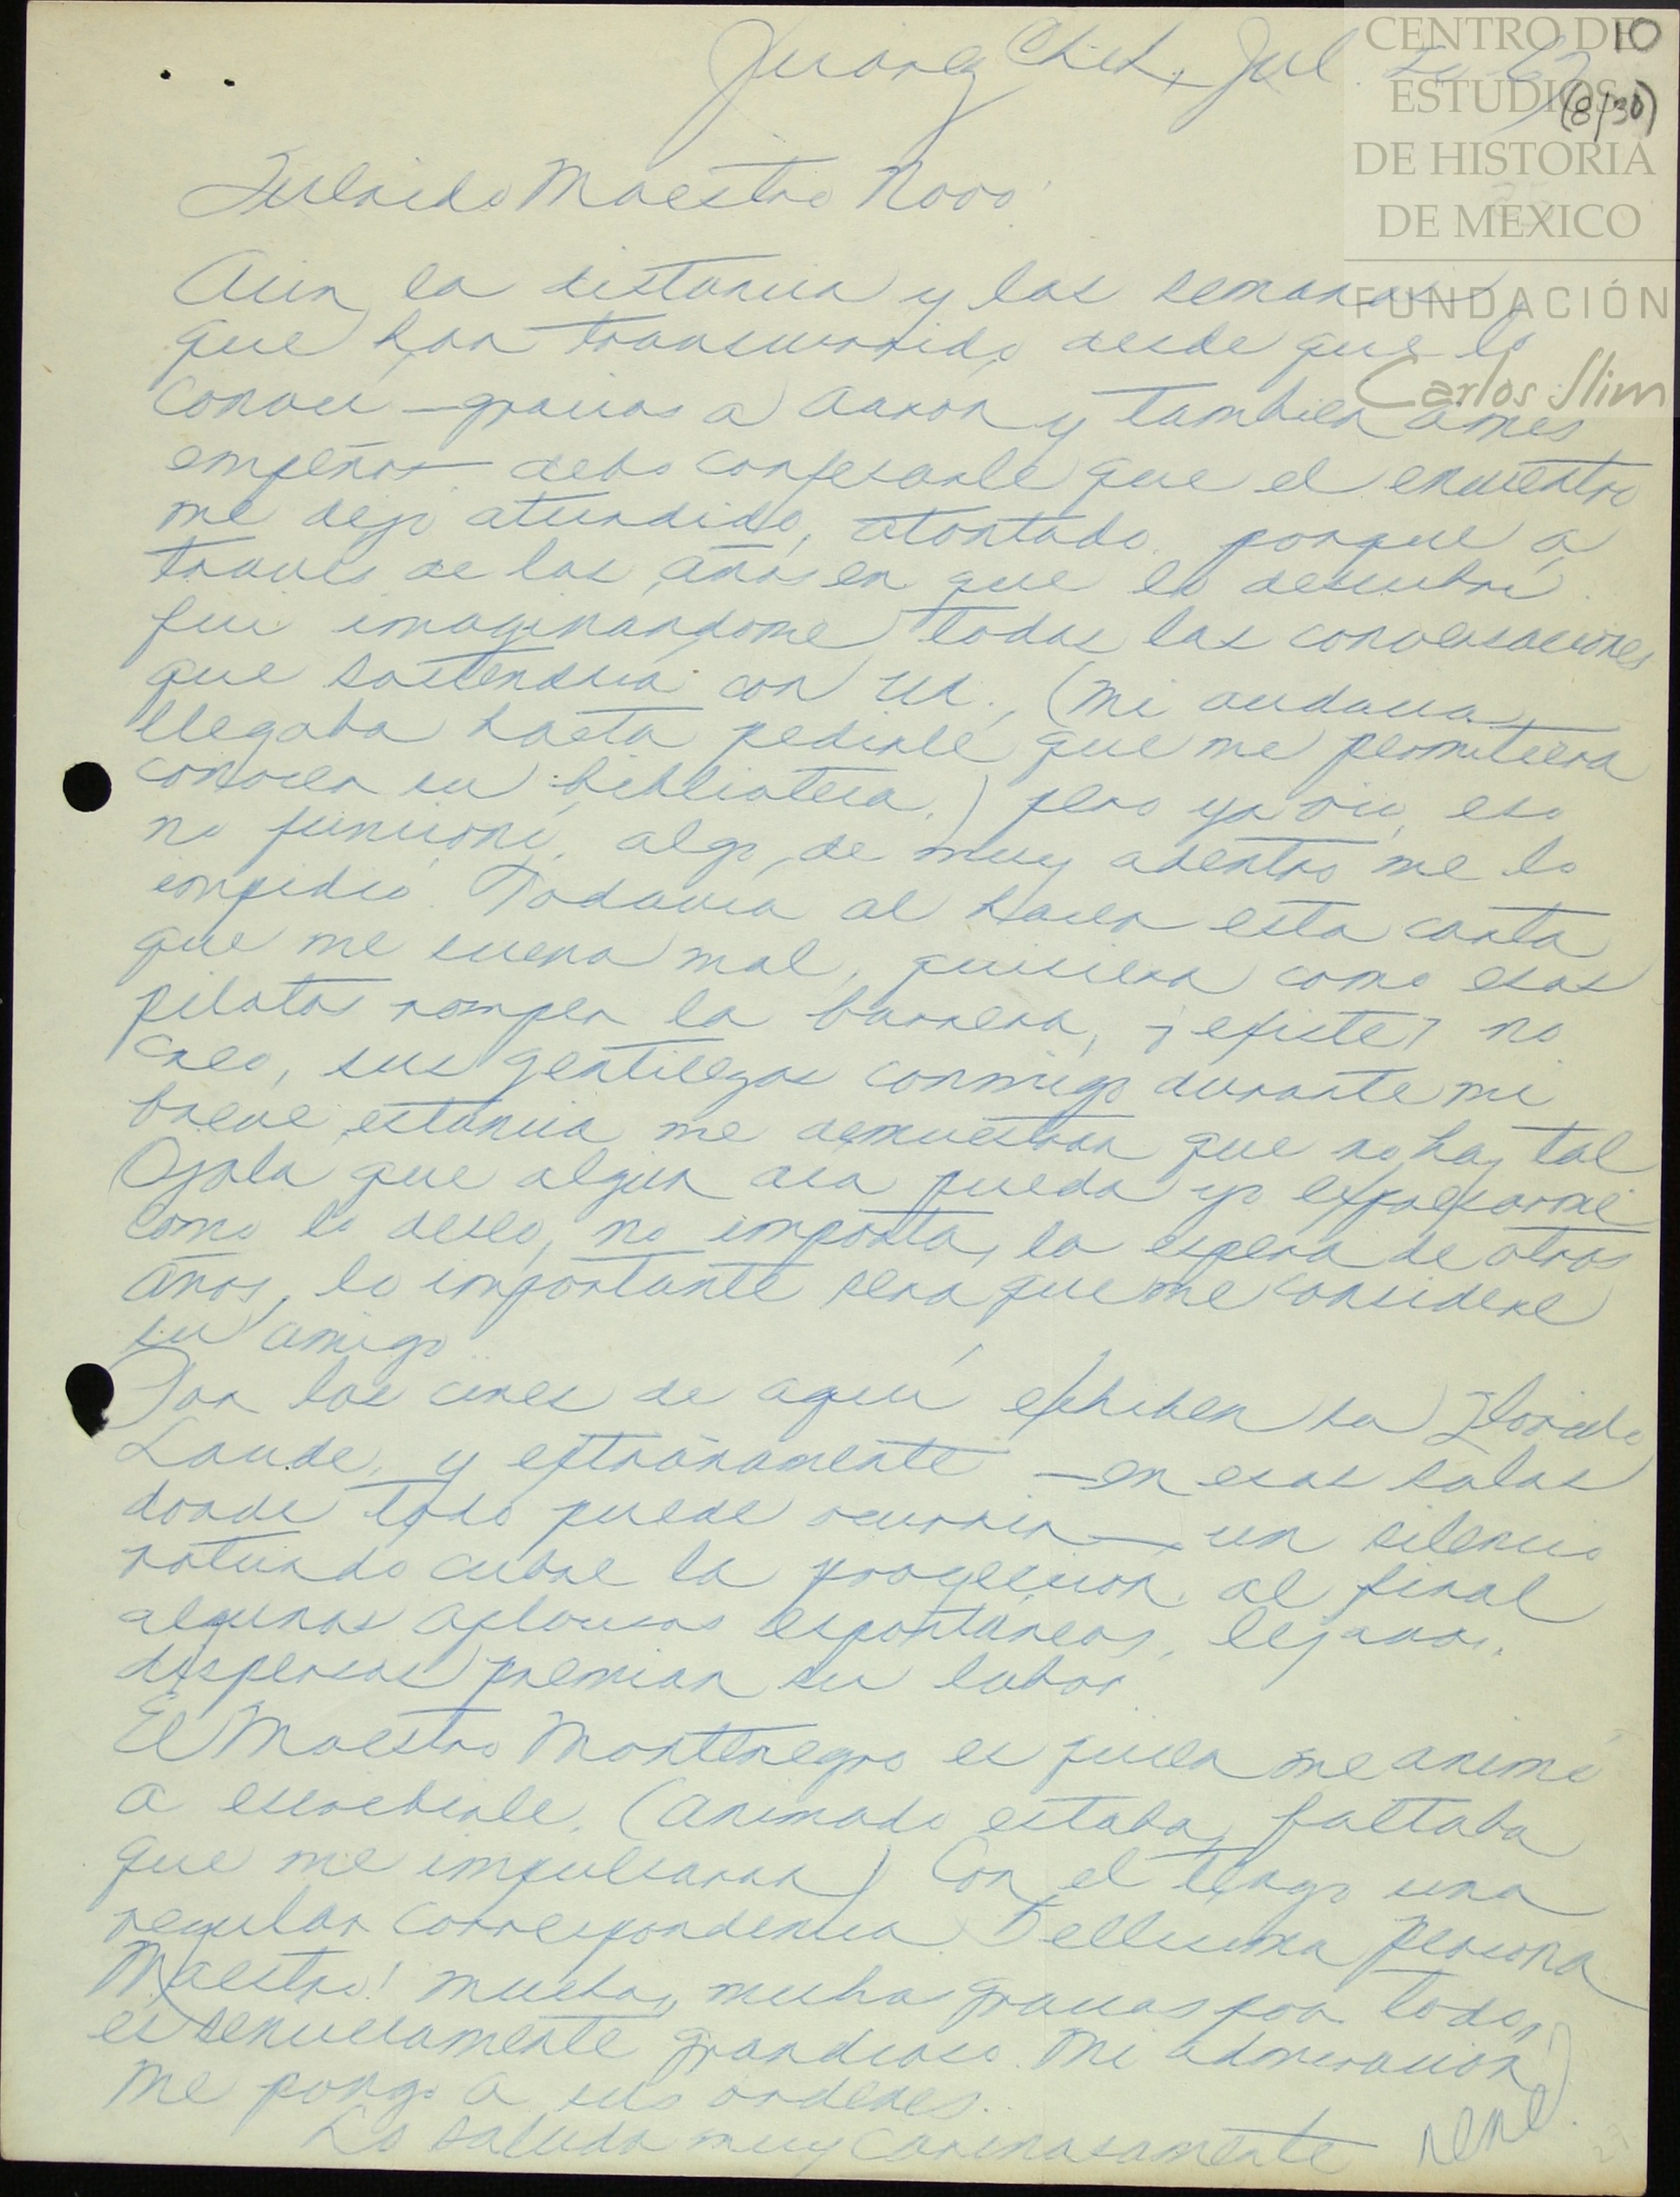 10
Juarez Chih, Jul.
(8/30)
CENTRO DE
ESTUDIOS
DE HISTORIA
DE MÉXICO
FUNDACIÓN
Carlos Slim
Maestro Novo:
Aun la distancia y las semanas
que han transcurrido desde que lo
conocí —gracias a Aaron y tambien a mis
empeños— debo confesarle que el encuentro
me dejo aturdido, atontado. porque a
traves de los años en que lo descubrí
fui imaginandome todas las conversaciones
que sostendría con Ud., (mi audacia
llegaba hasta pedirle que me permitiera
conocer su biblioteca.) pero ya vio, eso
no funcionó, algo de muy adentro me lo
impidió. Todavia al hacer esta carta
que me suena mal, quisiera como esos
pilotos romper la barrera, ¿existe? no
creo, sus gentilezas conmigo durante mi
breve estancia me demuestran que no hay tal
Ojala que algun dia pueda yo expresarme
como lo deseo, no importa la espera de otros
años, lo importante sera que me considere
su amigo.
Por los cines de aquí exhiben su Florido
Laude, y extrañamente —en esas salas
donde todo puede ocurrir— un silencio
rotundo cubre la proyeccion. al final
algunos aplausos espontáneos, lejanos,
dispersos premian su labor
El Maestro Montenegro es quien me animó
a escribirle. (animado estaba, faltaba
que me impulsaran) Con el tengo una
regular correspondencia. Bellisima persona
Maestro! muchas, muchas gracias por todo,
es sencillamente grandioso. Mi admiracion
me pongo a sus ordenes.
Lo saluda muy cariñosamente rené